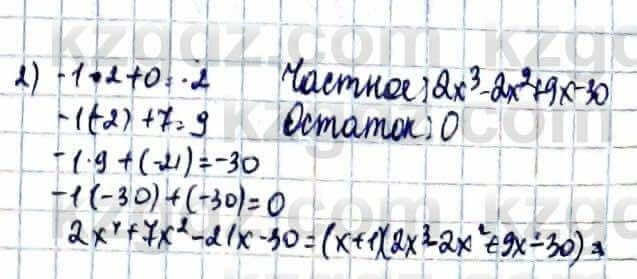 2) -1•2+0=-2 Частное: 2x³-2x²+9x-30
-1(-2)+7=9 Остаток: 0
-1·9+(-21)=-30
-1(-30)+(-30)=0
2x⁴+7x²-21x-30=(x+1)(2x³-2x²+9x-30)